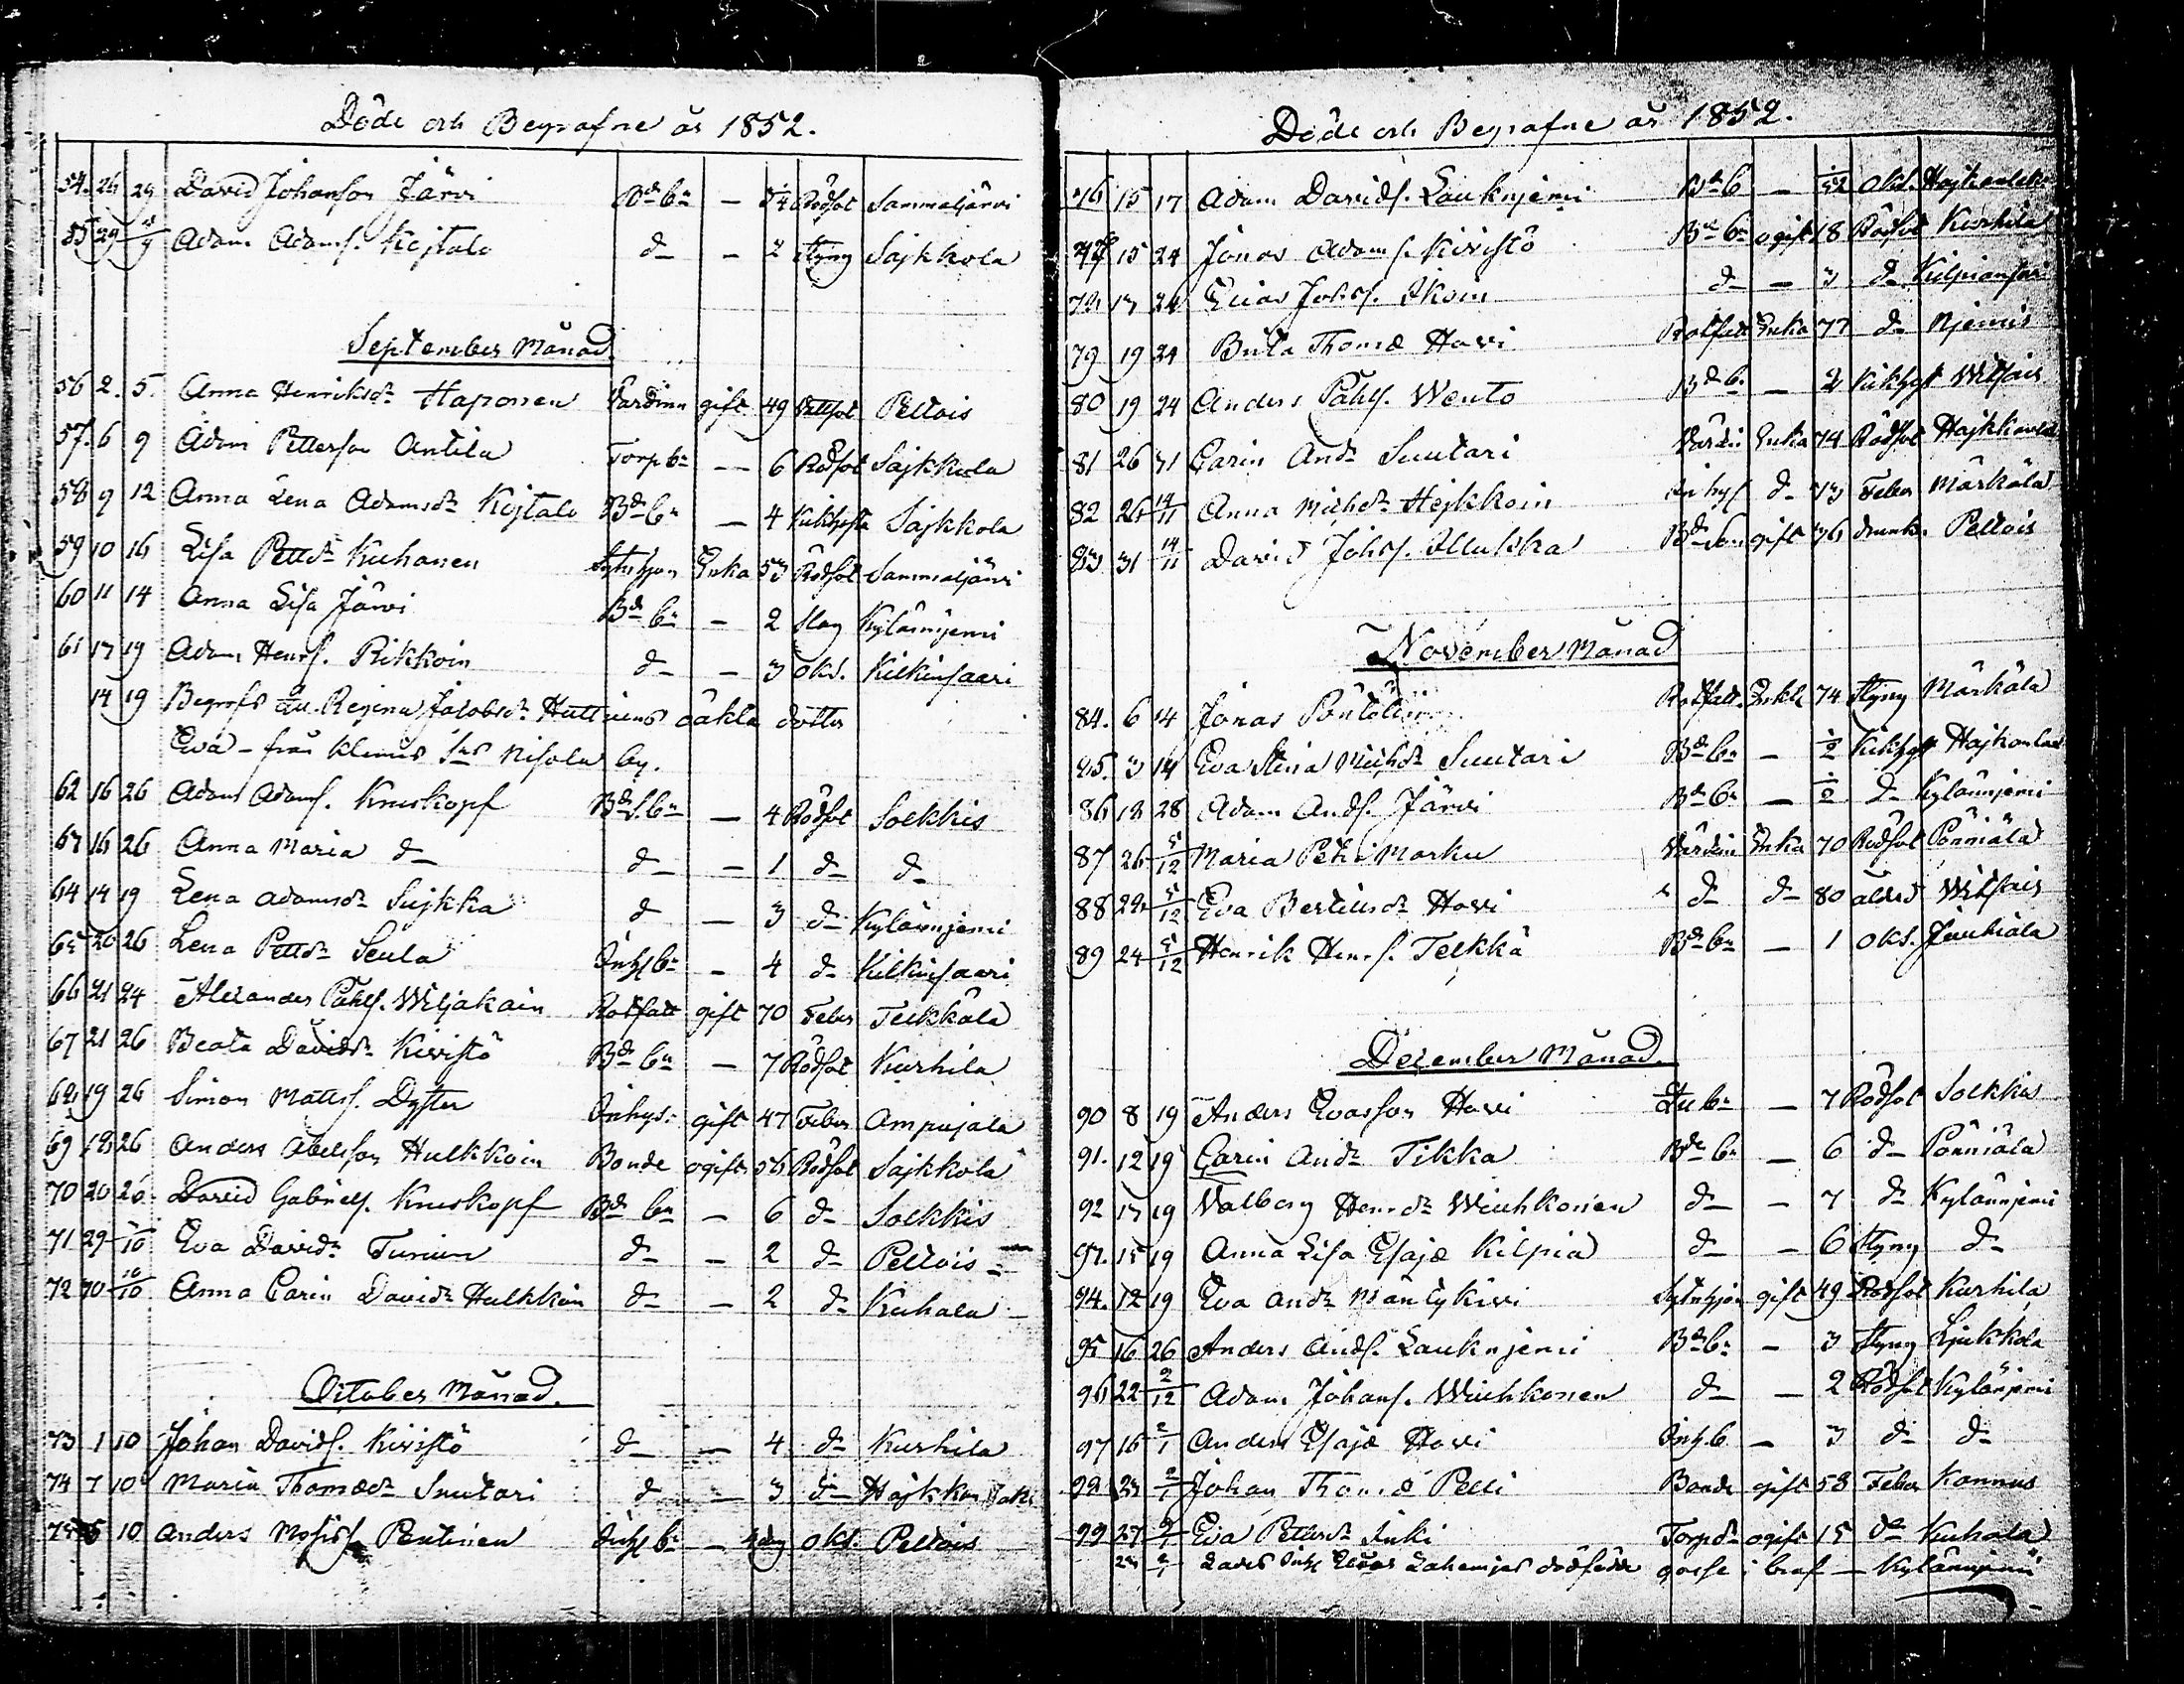 Döde och Begrafne år 1852.
54. 24 29 David Johansson Järvi Bde bn — 3/4 Rödsot Sammaljärvi
55 29 Adam Adams. Kejtalo d — 2 Styng Sajkkola
September Månad
56 2. 5. Anna Henriksdr Haponen Värdinn gift 49 Pellois
57. 6 9 Adam Petterson Antila Torp bn — 6 Rödsot Sajkkola
58 9 12 Anna Lena Adamsdr Kejtalo Bde bn — 4 Kikhosta Sajkkola
59 10 16 Lisa Pettdr Kuhanen Enka 53 Rödsot Sammaljärvi
60 11 14 Anna Lisa Järvi Bde bn — 2 Slag Kylännjemi
61 17 19 Adam Henrs. Rikkoin d — 3 okd. Kilkinsaari
14 19 Begrofs Regina Jacobsdr Huttuiens oäkta dotter
Eva – från Klemis Nisola by.
62 16 26 Adam Adams. Knuskopf Bde S. bn — 4 Rödsot Solkkis
63 16 26 Anna Maria d d — 1 d d
64 14 19 Lena Adamsdr Sujkka d — 3 d Kylännjemi
65 20 26 Lena Pettdr Seula Inhs bn — 4 d Kilkinsaari
66 21 24 Alexander Påhls. Wiljakain Rotfatt gift 70 Feber Telkkälä
67 21 26 Beata Davidsdr Kivistö Bde bn — 7 Rödsot Kurhila
68 19 26 Simon Matts. Dyster Inhys. gift 47 Feber Ampujala
69 18 26 Anders Abelsson Hulkkoin Bonde ogift 56 Rödsot Sajkkola
70 20 26 David Gabriels. Knuskopf Bde bn — 6 d Solkkis
71 29 /10 Eva Davidsdr Turiein d — 2 d Pellois
72 30 10/10 Anna Carin Davidsdr Hulkkoin d — 2 d Kuhala
October Månad.
73 1 10 Johan Davids. Kivistö d — 4 d Kurhila
74 7 10 Maria Thomædr Suutari d — 3 d
75 10 Anders Mosis. Pentinen Inhs bn — dag okd. Pellois
Döde och Begrafne år 1852.
76 15 17 Adam Davids. Lauknjemi Bde b — 1/52 okd.
77 15 24 Jonas Adams. Kivistö Bde bn ogift 18 Rödsot Kurhila
78 17 24 Elias Johs. Ikoin d — 3 d Kilpiansari
79 19 24 Brita Thomæ Hovi Rotfatt Enka 77 d Njemis
80 19 24 Anders Påhls. Wento Bde b. — 2 Kikhost
81 26 31 Carin Andr Suutari Värdin Enka 74 Rödsot
82 26 14/11 Anna Michdr Hejkkoin Inhys d 73 Feber Märkälä
83 31 14/11 David Johs. Mukka Bde Son gift 36 drunkn. Pellois
November Månad
84. 6 14 Jonas Rotfatt. Enkl. 74 Styng Märkälä
85. 3 14 Eva Stina Michdr Suutari Bde bn — 1/2 Kikhost
86 18 28 Adam Ands. Järvi Bde bn — 1/2 d Kylännjemi
87 26 5/12 Maria Petri Marku Värdin Enka 70 Rödsot Pönniälä
88 28 5/12 Eva Bertilsdr Hovi d d 80 ålderd
89 24 5/12 Henrik Henrs. Telkkä Bde bn — 1 okd. Jäuhiälä
December Månad.
90 8 19 Anders Evasson Hovi bn — 7 Rödsot Solkkis
91. 12 19 Carin Andr Tikka Bde bn — 6 d Pönniälä
92 17 19 Valborg Henrdr Wiuhkonen d — 7 d Kylännjemi
93. 15 19 Anna Lisa Esajæ Kilpiä d — 6 Styng d
94. 12 19 Eva Andr Mäntykivi gift 49 Rödsot Kurhila
95 16 26 Anders Ands. Lauknjemi Bde bn — 3 Styng Ljukkola
96 22 2/12 Adam Johans. Wiuhkonen d — 2 Rödsot Kylännjemi
97 16 2/1 Anders Esajæ Hovi Inh. b — 3 d d
98 23 2/1 Johan Thomæ Pelli Bonde gift 58 Feber Kannus
99 27 2/1 Eva Pettersdr Inki Torpdr ogift 15 do Kuhala
dödfödde gosse i — Kylännjemi